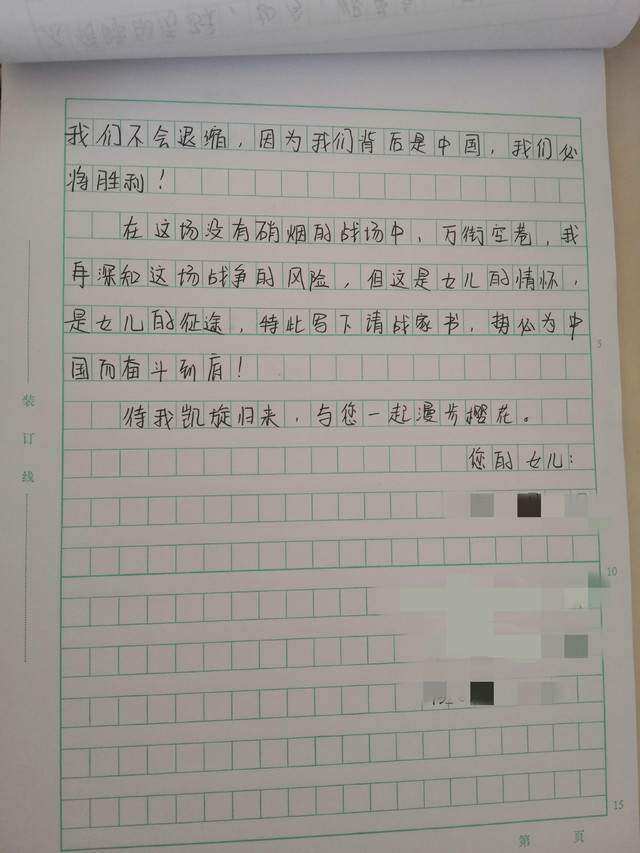 我们不会退缩，因为我们背后是中国，我们必
将胜利！
在这场没有硝烟的战场中，万街空巷，我
再深知这场战争的风险，但这是女儿的情怀，
是女儿的征途，特此写下请战家书，势必为中
国而奋斗到肩！
待我凯旋归来，与您一起漫步樱花。
您的女儿：
5
10
15
装订线
第 页